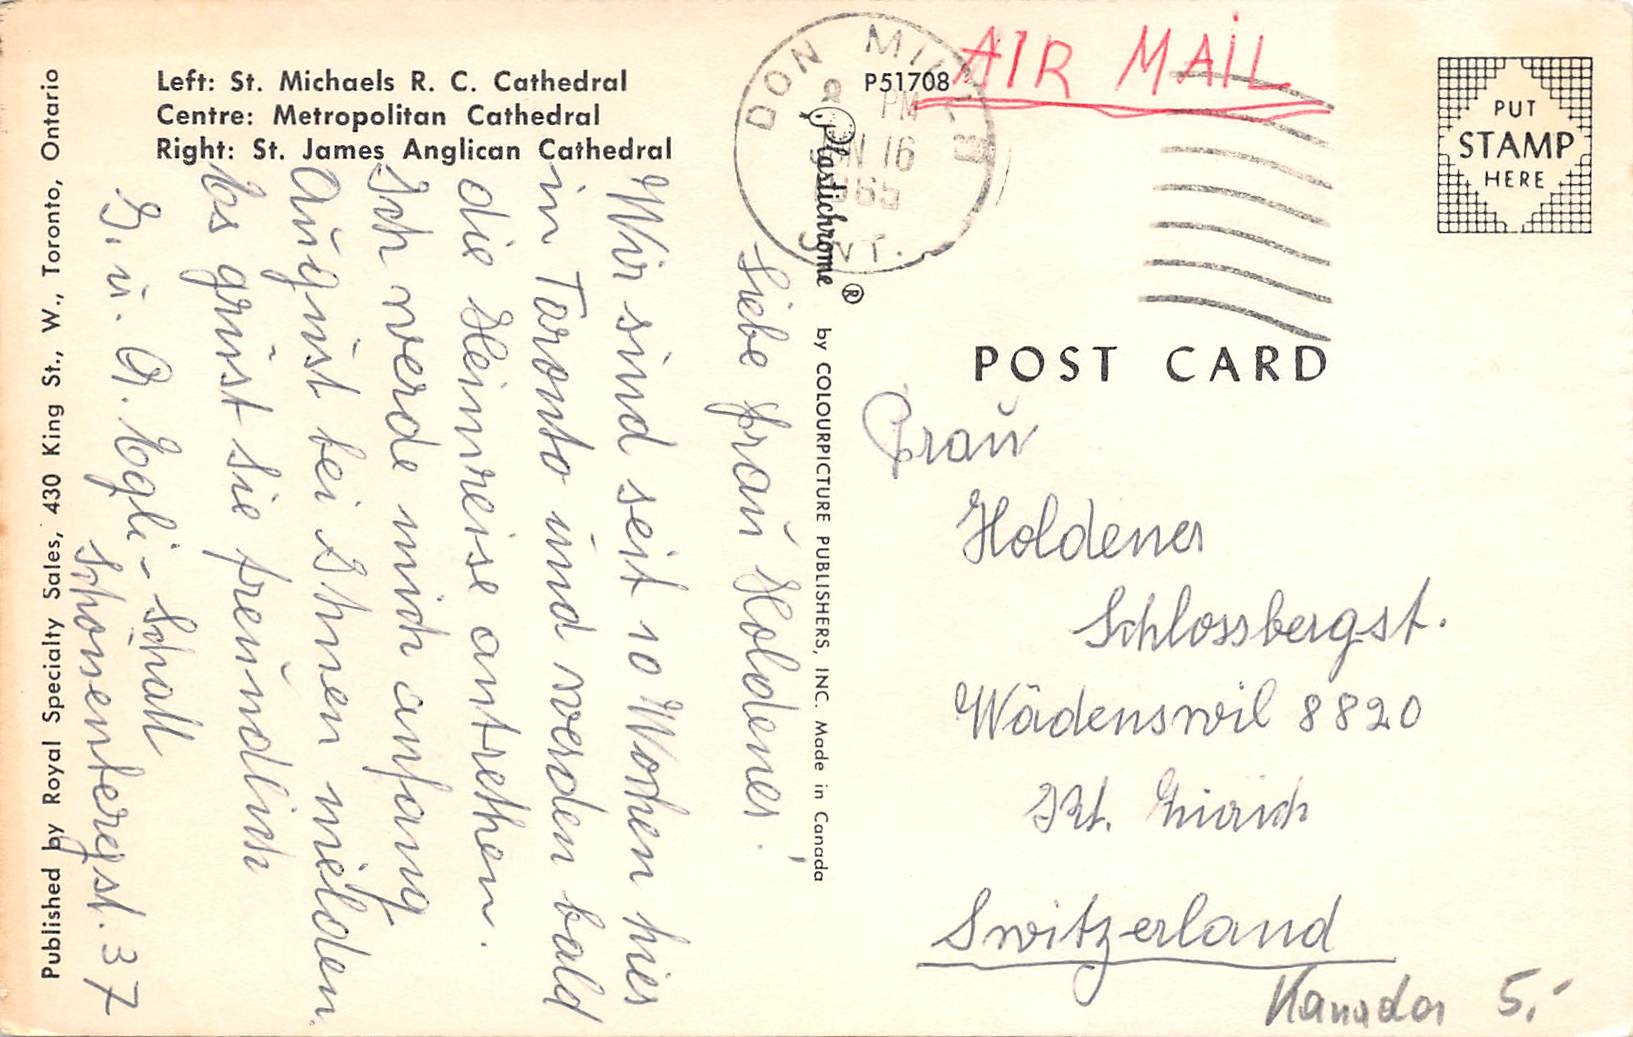 Left: St. Michaels R. C. Cathedral
Centre: Metropolitan Cathedral
Right: St. James Anglican Cathedral
Published by Royal Specialty Sales, 430 King St., W., Toronto, Ontario
Liebe Frau Holdener!
Wir sind seit 10 Wochen hier
in Toronto und werden bald
die Heimreise antrethen.
Ich werde mich anfang
August bei Ihnen melden.
Es grüst Sie freundlich
G. u. A. Egli-Schall
Schönenbergst. 37
P51708
Plastichrome ®
by COLOURPICTURE PUBLISHERS, INC. Made in Canada
DON MILLS
PM
16
1965
ONT.
AIR MAIL
PUT
STAMP
HERE
POST CARD
Frau
Holdener
Schlossbergst.
Wädenswil 8820
Kt. Zürich
Switzerland
Kanada 5.-